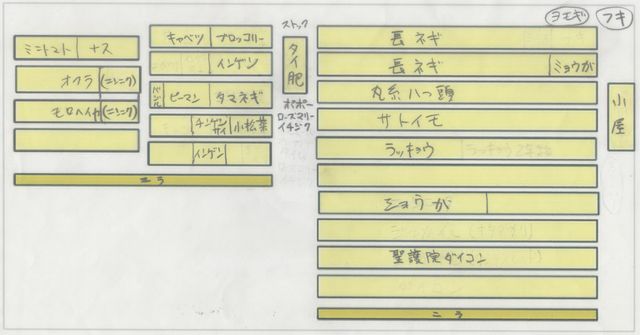 ヨモギ フキ
ストック
ミニトマト ナス
オクラ (ニンニク)
モロヘイヤ (ニンニク)
ニラ
キャベツ ブロッコリー
インゲン
バジル ピーマン タマネギ
チンゲンサイ 小松菜
インゲン
タイ肥
ポポー
ローズマリー
イチジク
長ネギ
長ネギ ミョウガ
丸系八つ頭
サトイモ
ラッキョウ
ショウガ
聖護院ダイコン
ニラ
小屋